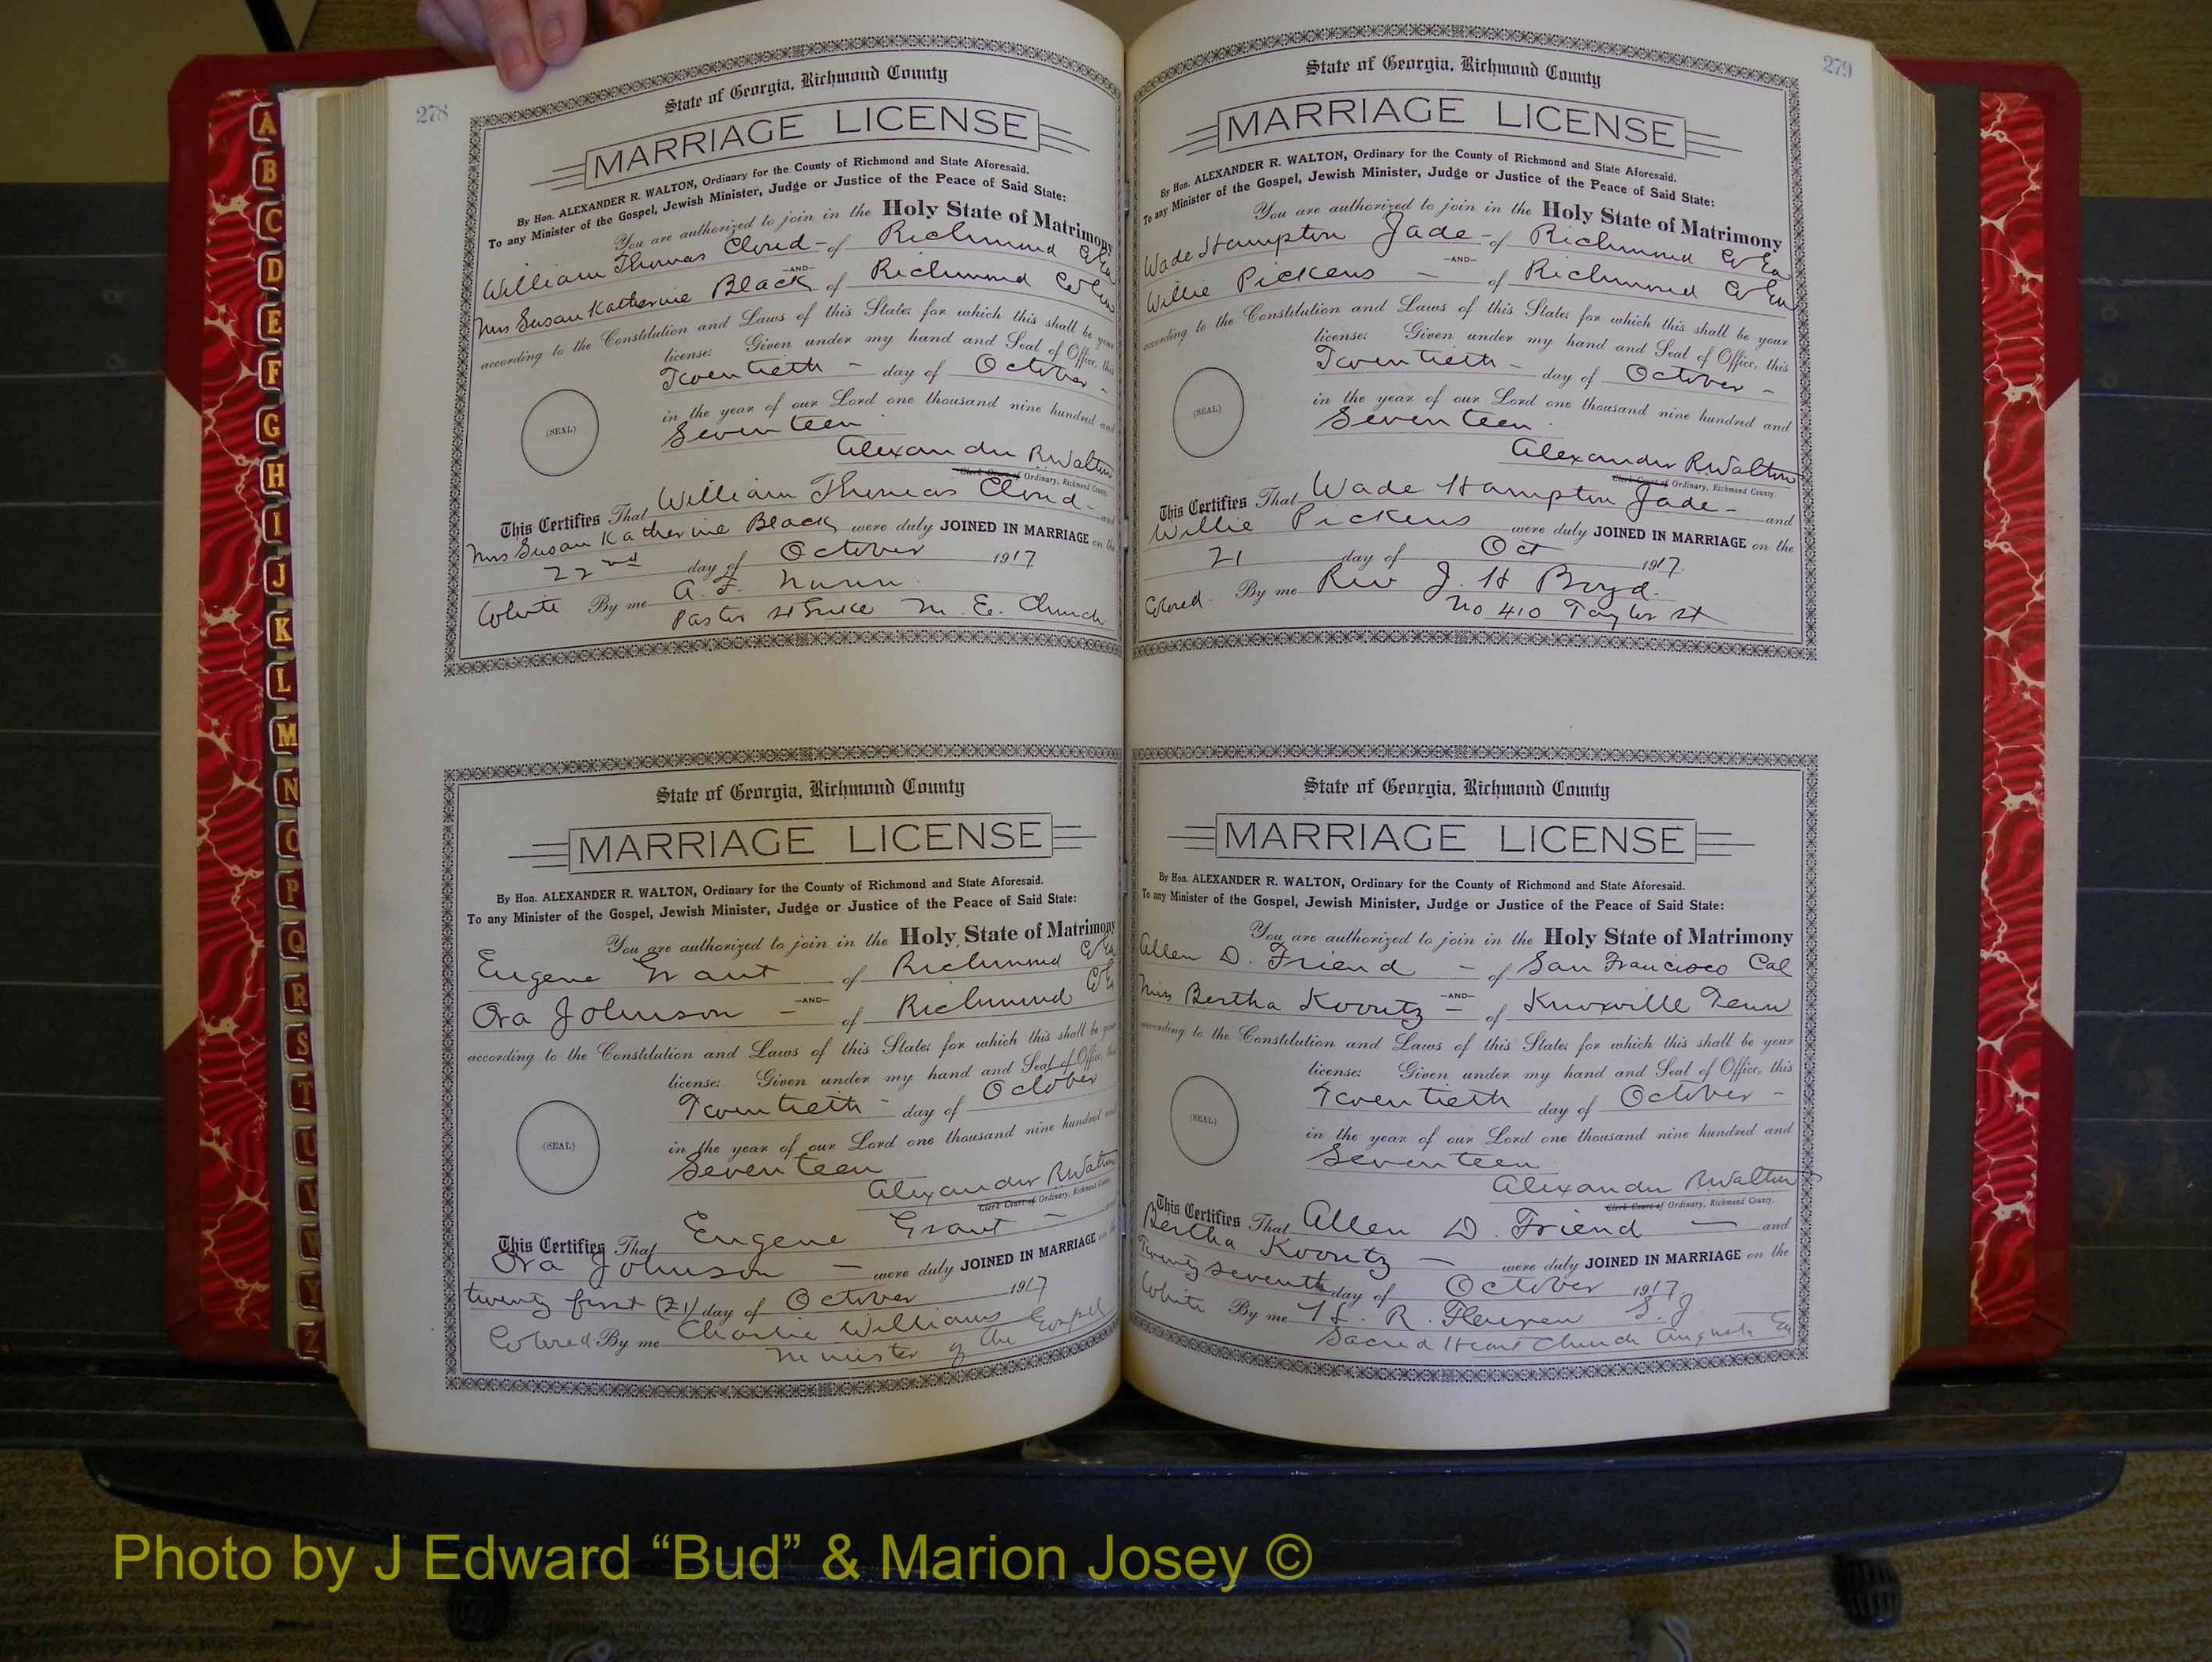 A
B
C
D
E
F
G
H
I
J
K
L
M
N
O
P
Q
R
S
T
U
V
W
Y
Z
278
State of Georgia, Richmond County
MARRIAGE LICENSE
By Hon. ALEXANDER R. WALTON, Ordinary for the County of Richmond and State Aforesaid.
To any Minister of the Gospel, Jewish Minister, Judge or Justice of the Peace of Said State:
You are authorized to join in the Holy State of Matrimony
William Thomas Cloud - of Richmond Co Ga
—AND—
Mrs Susan Katherine Black of Richmond Co Ga
according to the Constitution and Laws of this State; for which this shall be your
license: Given under my hand and Seal of Office, this
Twentieth - day of October -
in the year of our Lord one thousand nine hundred and
Seventeen
(SEAL)
Alexander R Walton
Clerk Court of Ordinary, Richmond County.
This Certifies That William Thomas Cloud - and
Mrs Susan Katherine Black were duly JOINED IN MARRIAGE on the
22nd day of October 1917
White By me A. F. Nunn
Pastor St Luke M. E. Church
State of Georgia, Richmond County
MARRIAGE LICENSE
By Hon. ALEXANDER R. WALTON, Ordinary for the County of Richmond and State Aforesaid.
To any Minister of the Gospel, Jewish Minister, Judge or Justice of the Peace of Said State:
You are authorized to join in the Holy State of Matrimony
Eugene Grant of Richmond Co Ga
—AND—
Ora Johnson - of Richmond Co Ga
according to the Constitution and Laws of this State; for which this shall be your
license: Given under my hand and Seal of Office, this
Twentieth - day of October
in the year of our Lord one thousand nine hundred and
Seventeen
(SEAL)
Alexander R Walton
Clerk Court of Ordinary, Richmond County.
This Certifies That Eugene Grant - and
Ora Johnson - were duly JOINED IN MARRIAGE on the
twenty first (21) day of October 1917
Colored By me Charlie Williams
Minister of the Gospel
279
State of Georgia, Richmond County
MARRIAGE LICENSE
By Hon. ALEXANDER R. WALTON, Ordinary for the County of Richmond and State Aforesaid.
To any Minister of the Gospel, Jewish Minister, Judge or Justice of the Peace of Said State:
You are authorized to join in the Holy State of Matrimony
Wade Hampton Jade - of Richmond Co Ga
—AND—
Willie Pickens - of Richmond Co Ga
according to the Constitution and Laws of this State; for which this shall be your
license: Given under my hand and Seal of Office, this
Twentieth - day of October -
in the year of our Lord one thousand nine hundred and
Seventeen.
(SEAL)
Alexander R Walton
Clerk Court of Ordinary, Richmond County.
This Certifies That Wade Hampton Jade - and
Willie Pickens were duly JOINED IN MARRIAGE on the
21 day of Oct 1917.
Colored. By me Rev J. H Boyd.
No 410 Taylor St
State of Georgia, Richmond County
MARRIAGE LICENSE
By Hon. ALEXANDER R. WALTON, Ordinary for the County of Richmond and State Aforesaid.
To any Minister of the Gospel, Jewish Minister, Judge or Justice of the Peace of Said State:
You are authorized to join in the Holy State of Matrimony
Allen D. Friend - of San Francisco Cal
—AND—
Miss Bertha Koontz - of Knoxville Tenn
according to the Constitution and Laws of this State; for which this shall be your
license: Given under my hand and Seal of Office, this
Twentieth day of October -
in the year of our Lord one thousand nine hundred and
Seventeen
(SEAL)
Alexander R Walton
Clerk Court of Ordinary, Richmond County.
This Certifies That Allen D. Friend - and
Bertha Koontz - were duly JOINED IN MARRIAGE on the
Twenty seventh day of October 1917
White By me R. S. J
Sacred Heart Church Augusta Ga
Photo by J Edward “Bud” & Marion Josey ©